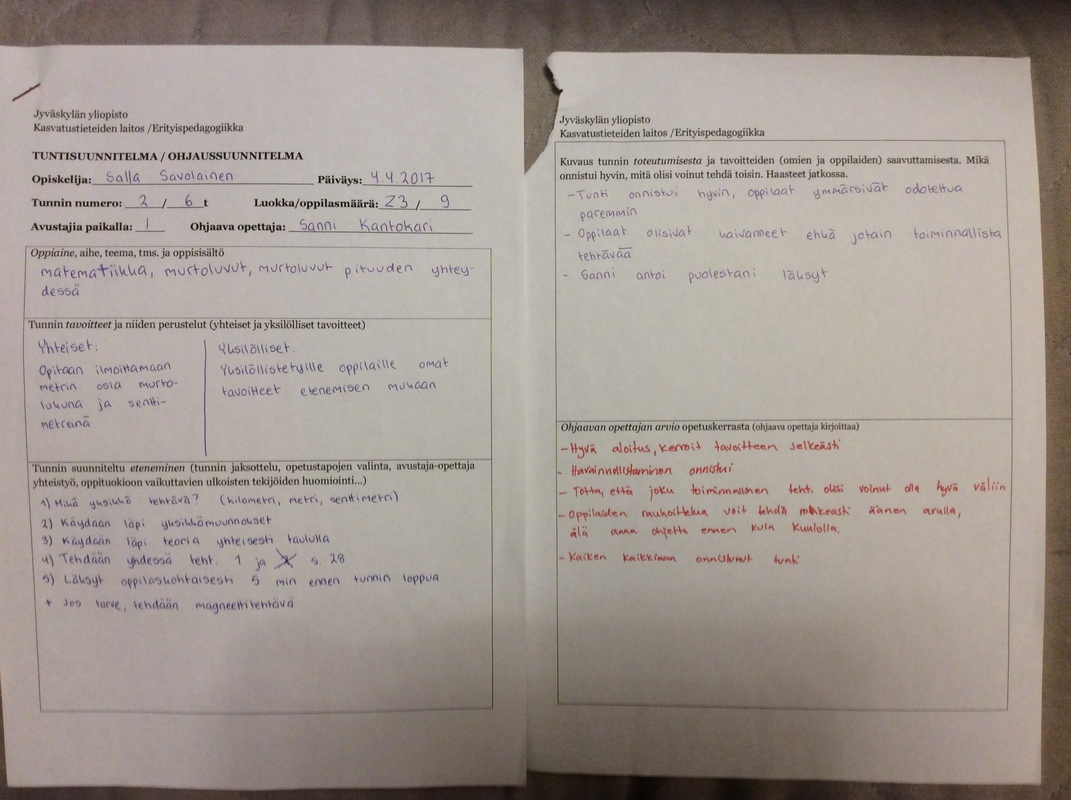 Jyväskylän yliopisto
Kasvatustieteiden laitos /Erityispedagogiikka
TUNTISUUNNITELMA / OHJAUSSUUNNITELMA
Opiskelija: Salla Savolainen Päiväys: 4.4.2017
Tunnin numero: 2 / 6 t Luokka/oppilasmäärä: Z3 / 9
Avustajia paikalla: 1 Ohjaava opettaja: Sanni Kantokari
Oppiaine, aihe, teema, tms. ja oppisisältö
matematiikka, murtoluvut, murtoluvut pituuden yhtey-
dessä
Tunnin tavoitteet ja niiden perustelut (yhteiset ja yksilölliset tavoitteet)
Yhteiset:
Opitaan ilmoittamaan
metrin osia murto-
lukuna ja sentti-
metreinä
Yksilölliset:
Yksilöllistetyille oppilaille omat
tavoitteet etenemisen mukaan
Tunnin suunniteltu eteneminen (tunnin jaksottelu, opetustapojen valinta, avustaja-opettaja
yhteistyö, oppituokioon vaikuttavien ulkoisten tekijöiden huomiointi...)
1) Mikä yksikkö tehtävä? (kilometri, metri, senttimetri)
2) Käydään läpi yksikkömuunnokset
3) Käydään läpi teoria yhteisesti taululla
4) Tehdään yhdessä teht. 1 ja 2 s. 28
5) Läksyt oppilaskohtaisesti 5 min ennen tunnin loppua
+ Jos tarve, tehdään magneettitehtävä
Jyväskylän yliopisto
Kasvatustieteiden laitos /Erityispedagogiikka
Kuvaus tunnin toteutumisesta ja tavoitteiden (omien ja oppilaiden) saavuttamisesta. Mikä
onnistui hyvin, mitä olisi voinut tehdä toisin. Haasteet jatkossa.
- Tunti onnistui hyvin, oppilaat ymmärsivät odotettua
paremmin
- Oppilaat olisivat kaivanneet ehkä jotain toiminnallista
tehtävää
- Sanni antoi puolestani läksyt
Ohjaavan opettajan arvio opetuskerrasta (ohjaava opettaja kirjoittaa)
- Hyvä aloitus, kerroit tavoitteen selkeästi
- Havainnollistaminen onnistui
- Totta, että joku toiminnallinen teht. olisi voinut olla hyvä väliin
- Oppilaiden rauhoittelua voit tehdä rohkeasti äänen avulla,
älä anna ohjetta ennen kuin kuulolla.
- Kaiken kaikkiaan onnistunut tunti